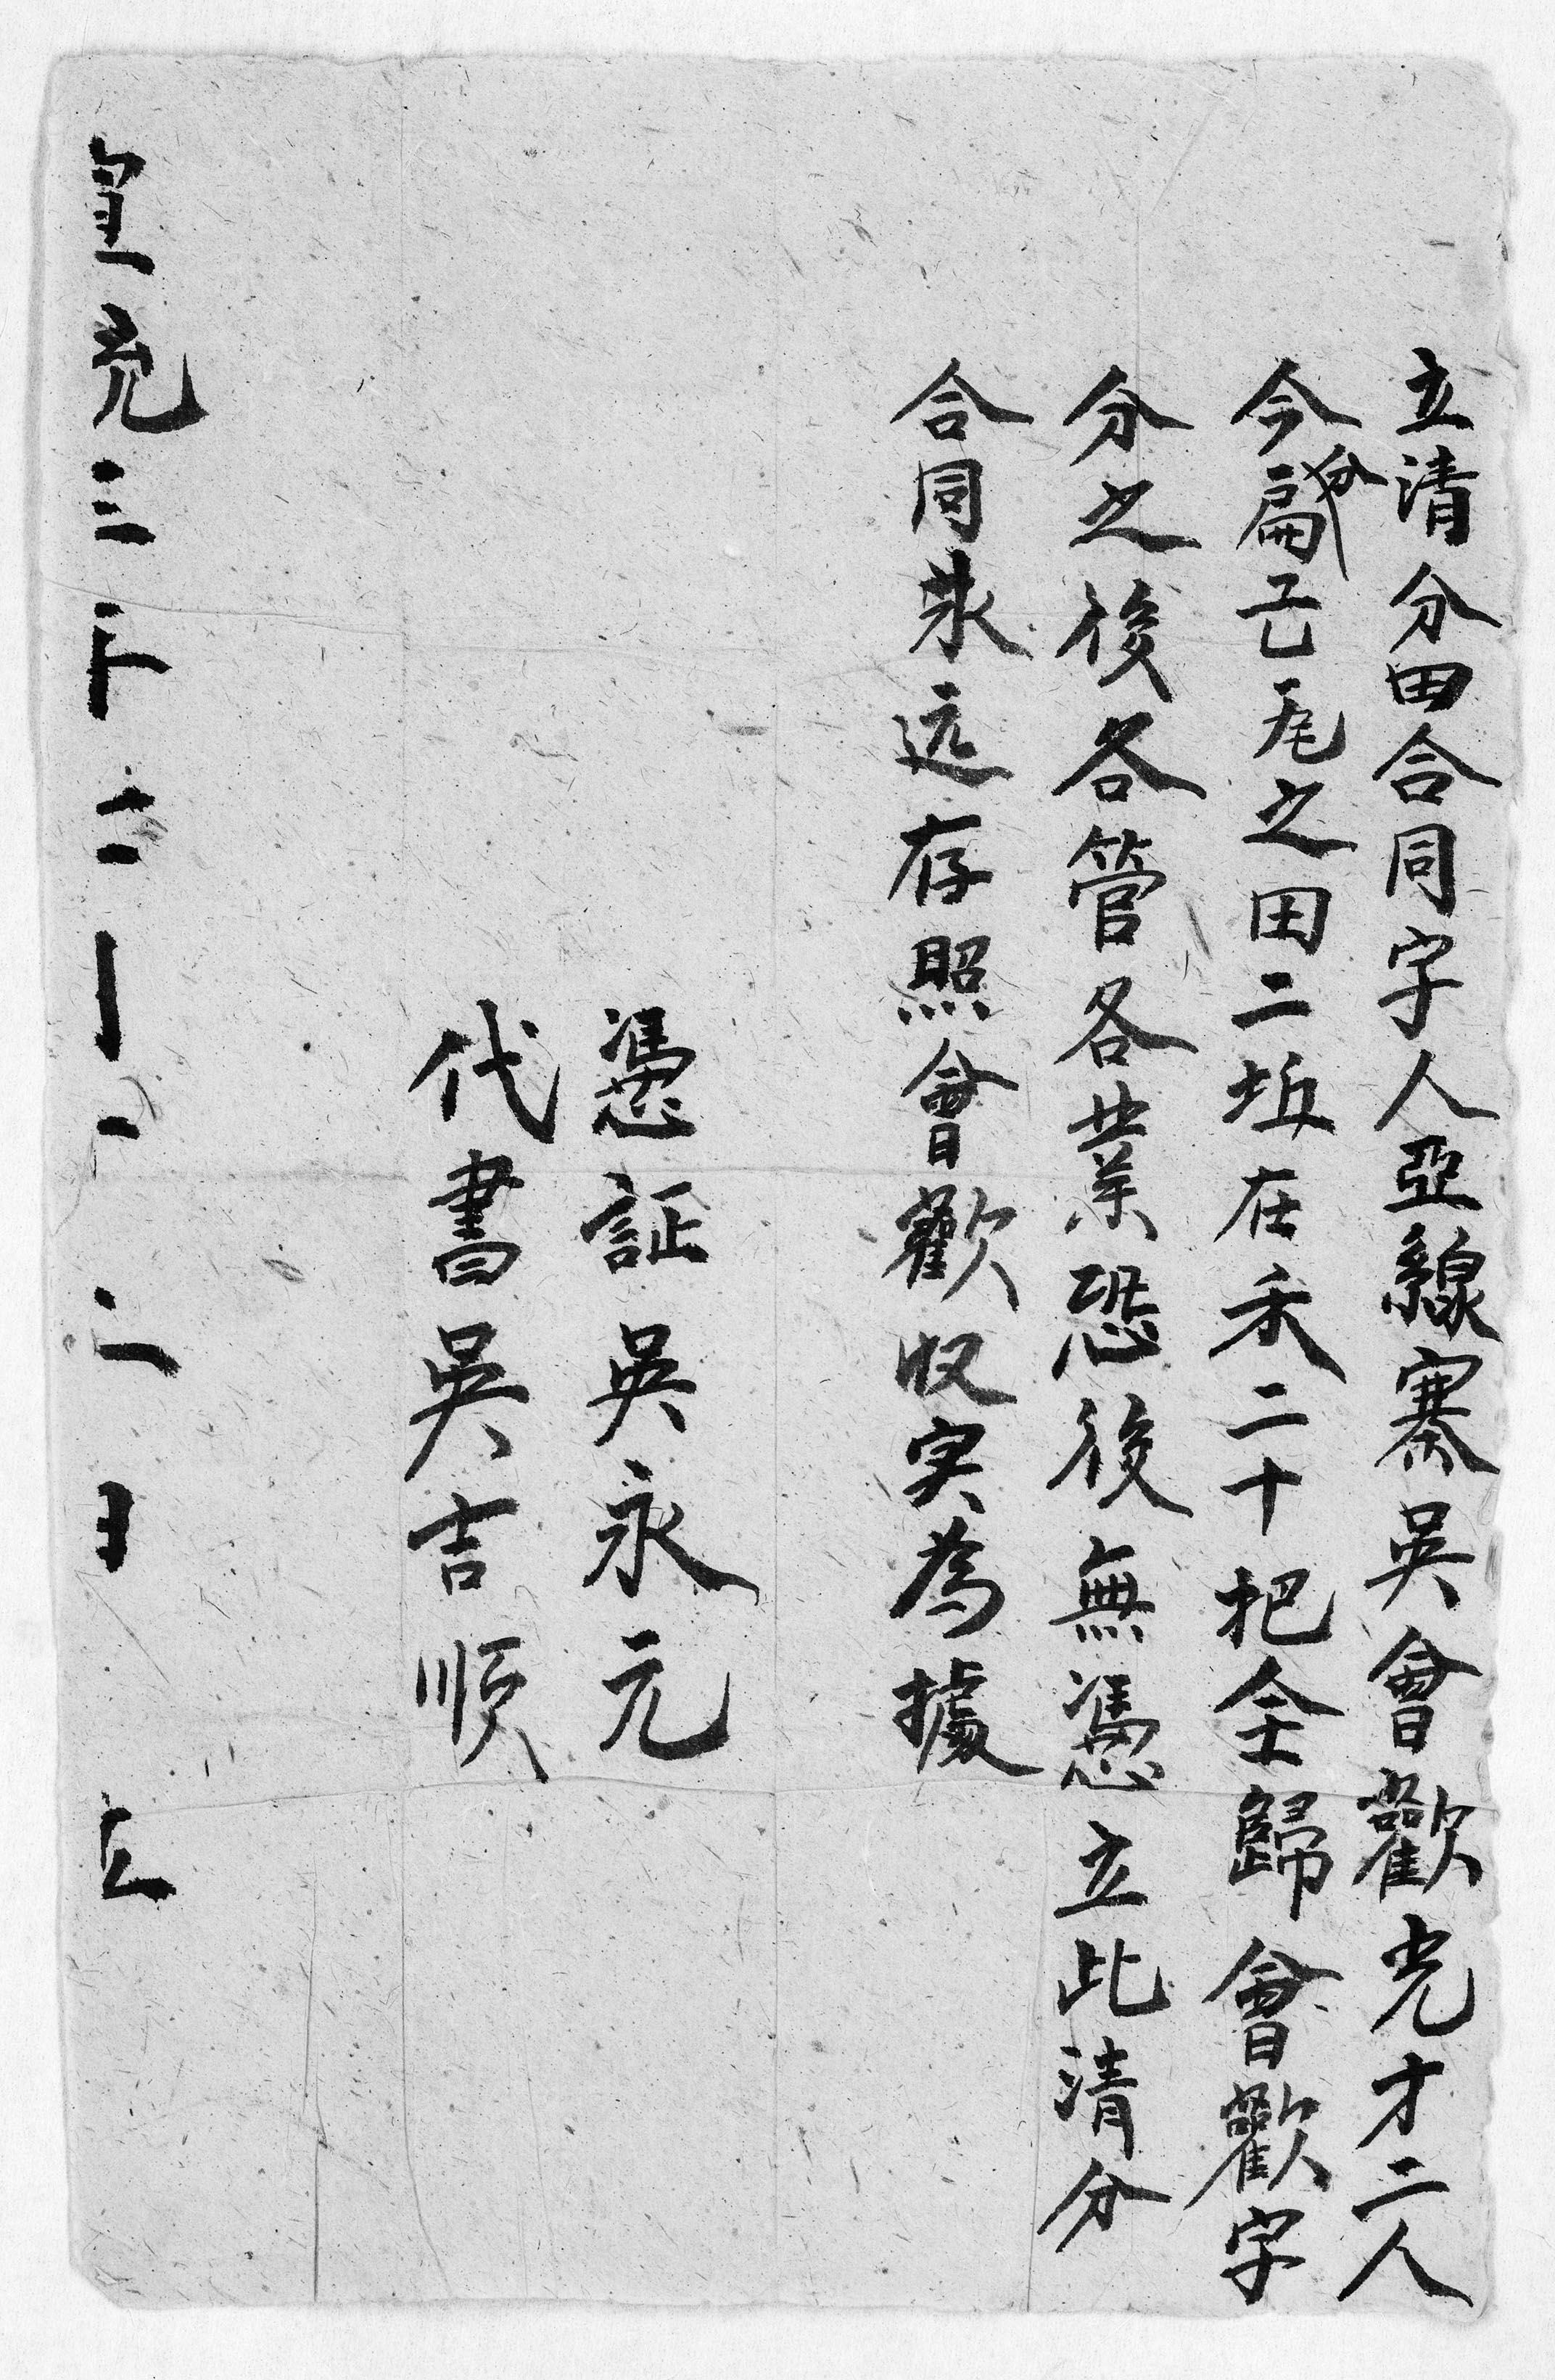 立清分田合同字人亞線寨吳會歡光才二人
今分扁毛之田二坵在禾二十把全歸會歡字
分之後各管各業恐後無憑立此清分
合同永远存照會歡收实為據
憑証吳永元
代書吳吉順
三十六 二日立